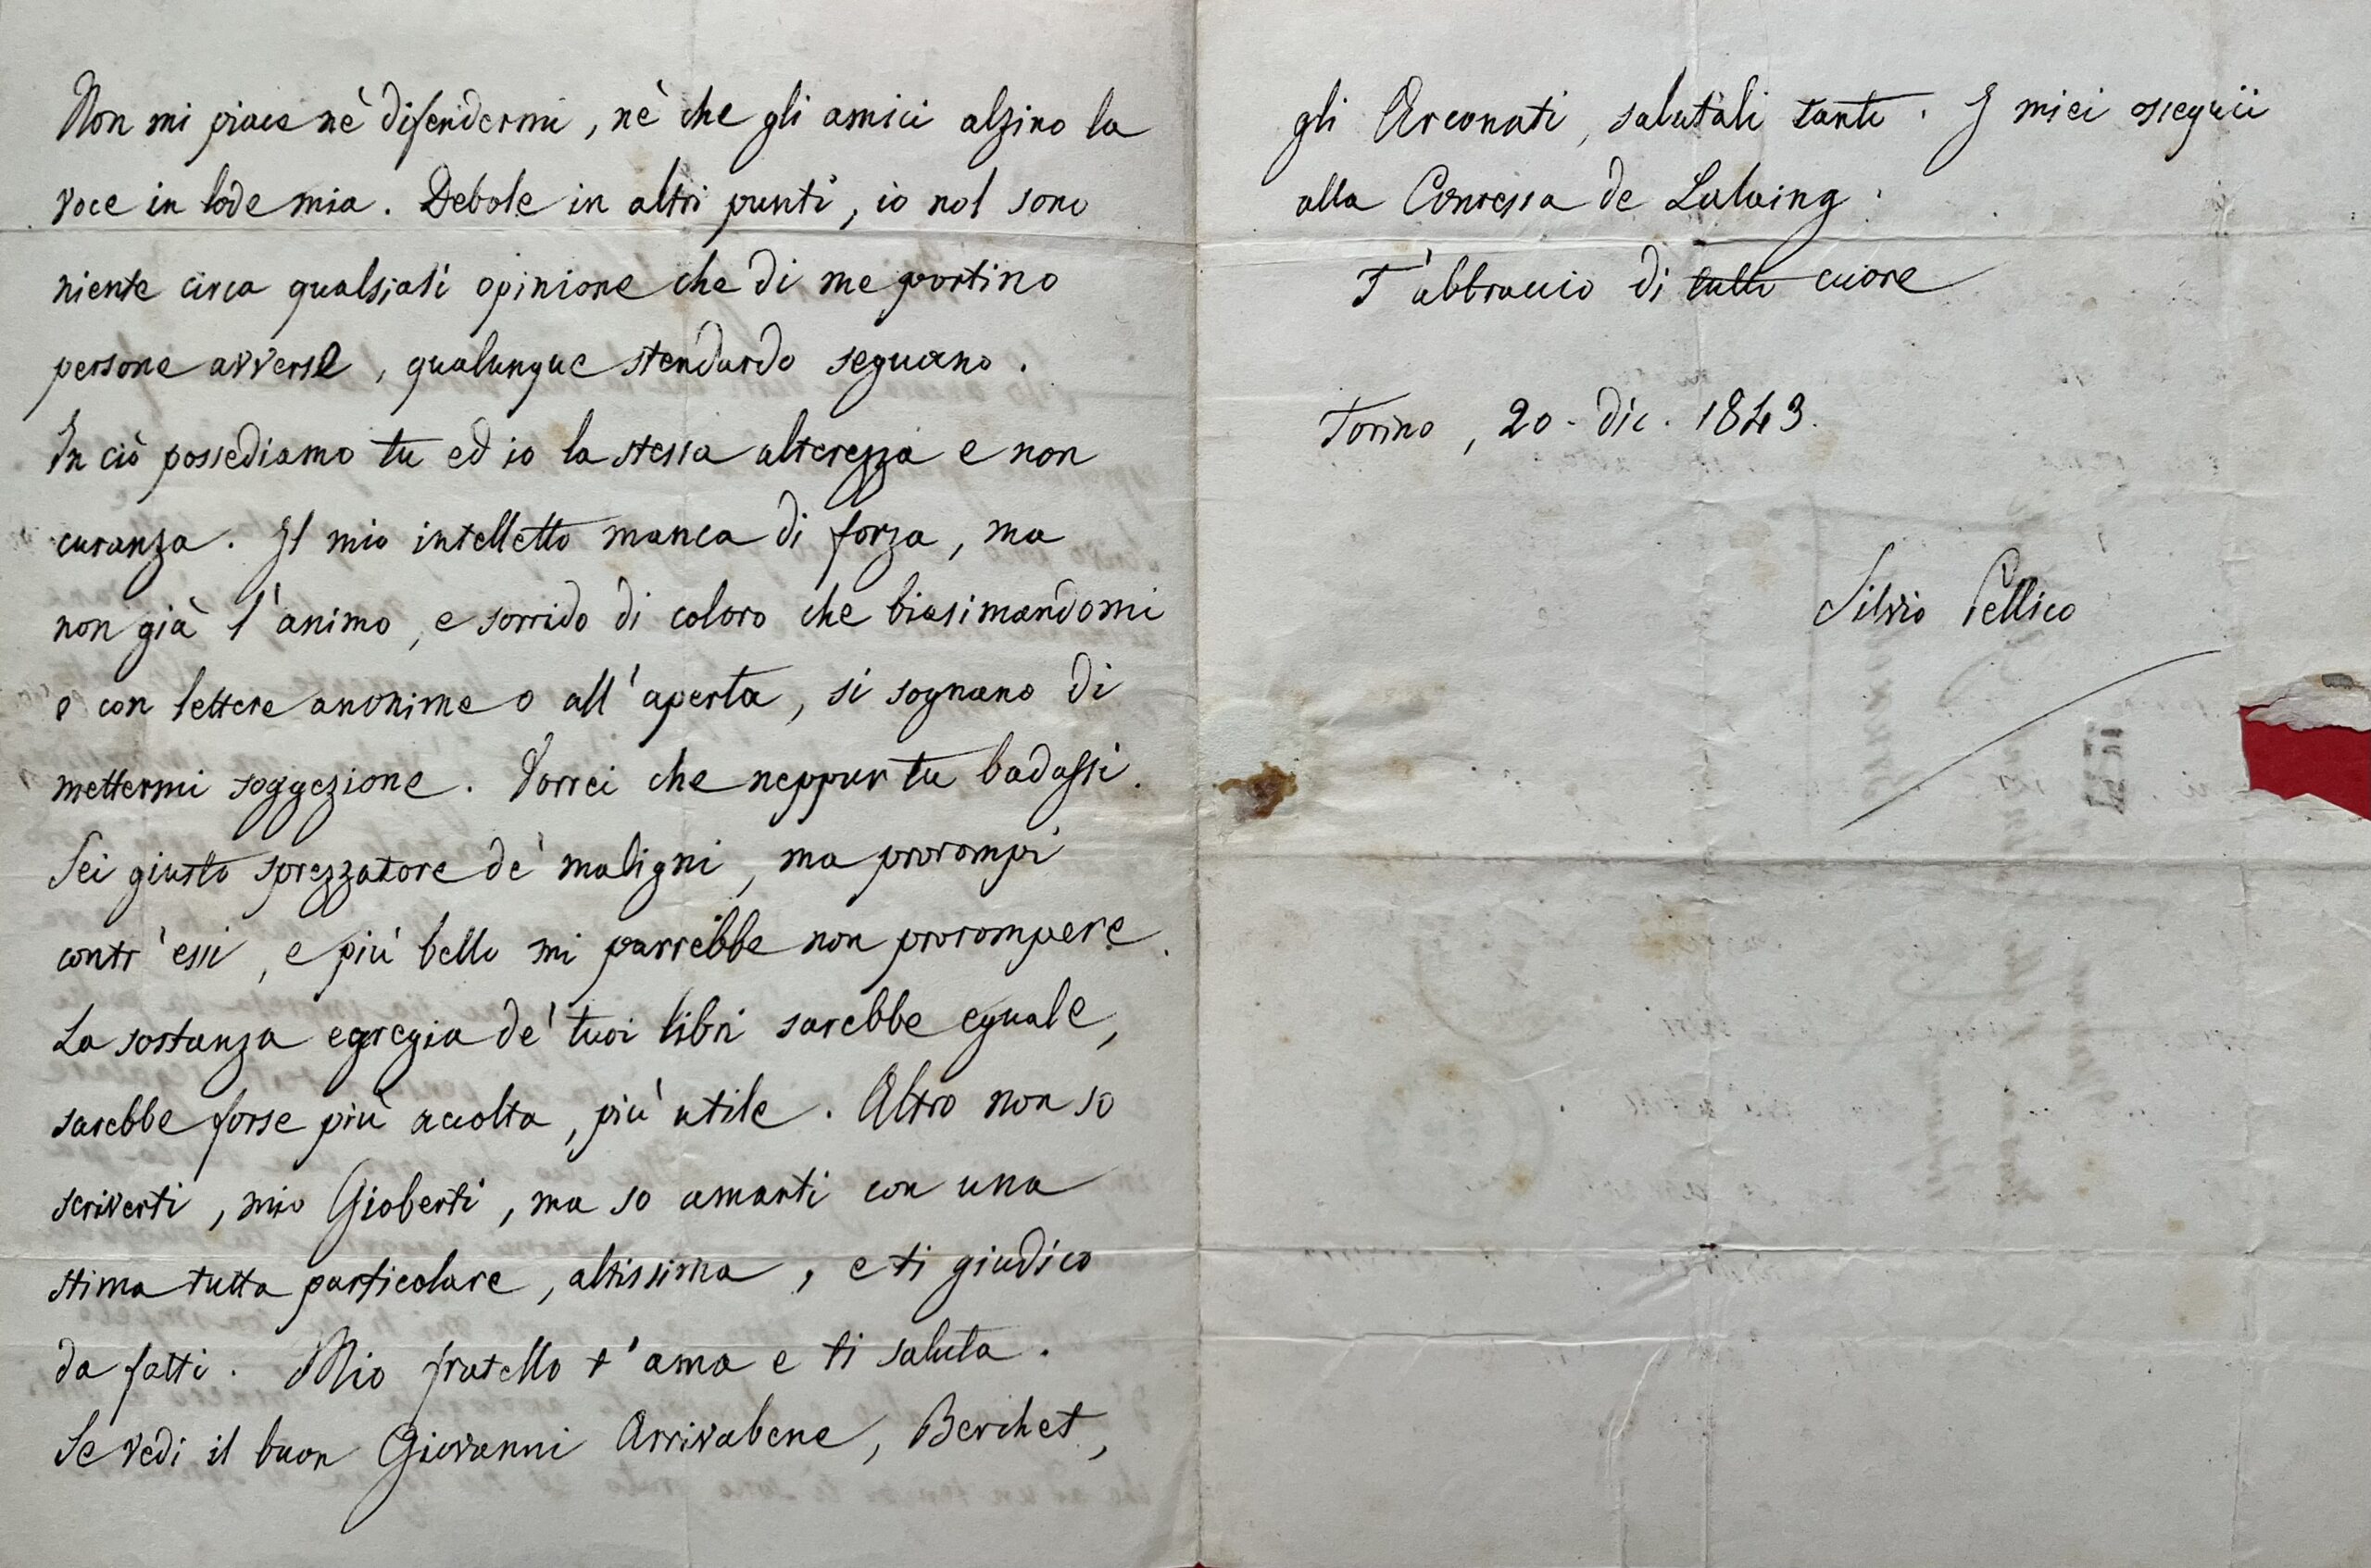 Non mi piace nè difendermi, nè che gli amici alzino la
voce in lode mia. Debole in altri punti, io nol sono
niente circa qualsiasi opinione che di me portino
persone avverse, qualunque stendardo seguano.
In ciò possediamo tu ed io la stessa alterezza e non
curanza. Il mio intelletto manca di forza, ma
non già l'animo, e sorrido di coloro che biasimandomi
o con lettere anonime o all'aperta, si sognano di
mettermi soggezione. Vorrei che neppur tu badassi.
Sei giusto sprezzatore de' maligni, ma prorompi
contr'essi, e più bello mi parrebbe non prorompere.
La sostanza egregia de' tuoi libri sarebbe eguale,
sarebbe forse più accolta, più utile. Altro non so
scriverti, mio Gioberti, ma so amarti con una
stima tutta particolare, altissima, e ti giudico
da fatti. Mio fratello t'ama e ti saluta.
Se vedi il buon Giovanni Arrivabene, Berchet,
gli Arconati, salutali tanto. I miei ossequii
alla Contessa de Lalaing.
T'abbraccio di tutto cuore
Torino, 20. dic. 1843.
Silvio Pellico